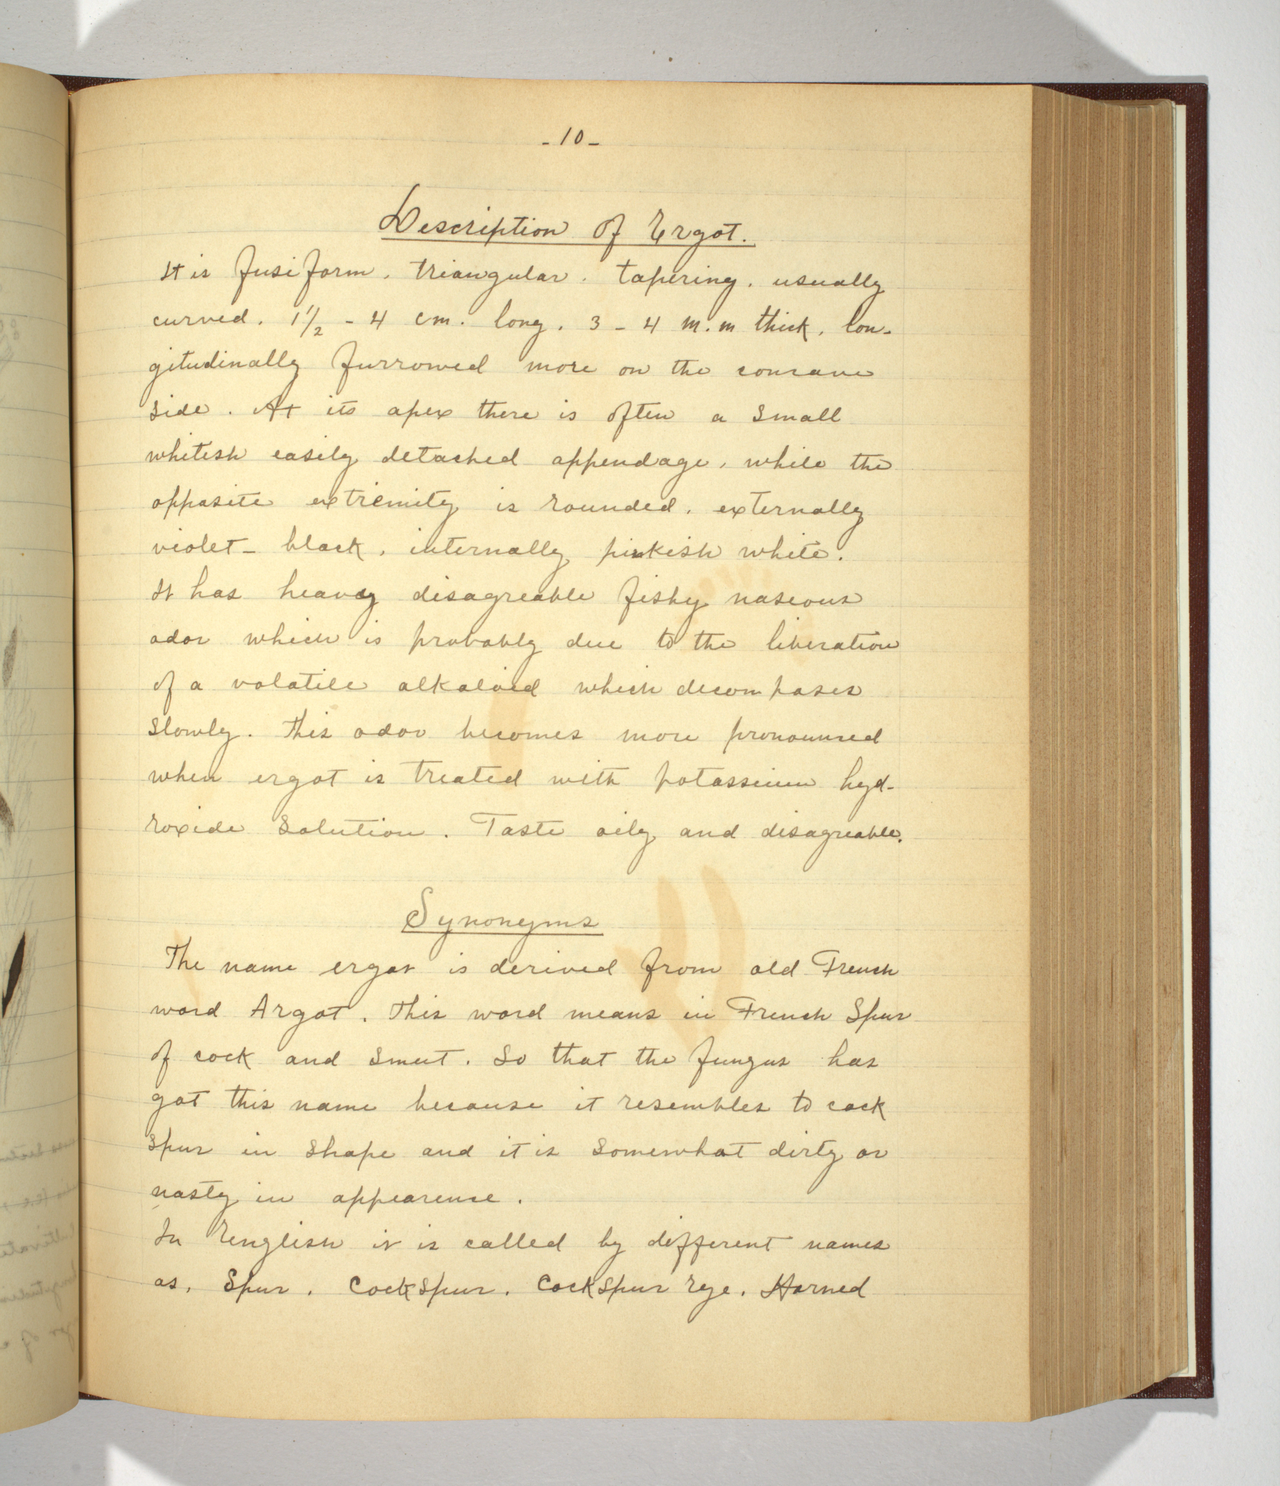 - 10 -
Description of Ergot.
It is fusiform. triangular. tapering. usually
curved. 1 1/2 - 4 cm. long. 3 - 4 m.m thick. lon-
gitudinally furrowed more on the concave
side. At its apex there is often a small
whitish easily detached appendage, while the
opposite extremity is rounded. externally
violet- black. internally pinkish white.
It has heavy disagreable fishy naseous
odor which is probably due to the liberation
of a volatile alkaloid which decomposes
slowly. This odor becomes more pronounced
when ergot is treated with potassium hyd-
roxide solution. Taste oily and disagreable.
Synonyms
The name ergot is derived from old French
word Argot. This word means in French Spur
of cock and smut. So that the fungus has
got this name because it resembles to cock
spur in shape and it is somewhat dirty or
nasty in appearence.
In English it is called by different names
as. Spur. Cockspur. Cockspur rye. Horned